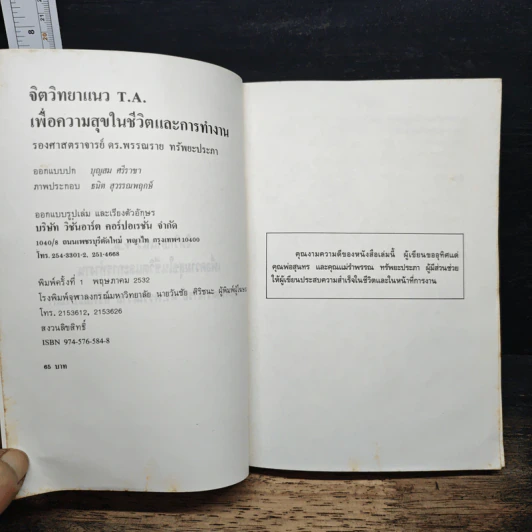 จิตวิทยาแนว T.A.
เพื่อความสุขในชีวิตและการทำงาน
รองศาสตราจารย์ ดร.พรรณราย ทรัพยะประภา
ออกแบบปก บุญสม ศรีราชา
ภาพประกอบ ธนิต สุวรรณพฤกษ์
ออกแบบรูปเล่ม และเรียงตัวอักษร
บริษัท วิชั่นอาร์ต คอร์ปอเรชัน จำกัด
1040/8 ถนนเพชรบุรีตัดใหม่ พญาไท กรุงเทพฯ 10400
โทร. 254-3301-2, 251-4668
พิมพ์ครั้งที่ 1 พฤษภาคม 2532
โรงพิมพ์จุฬาลงกรณ์มหาวิทยาลัย นายวันชัย ศิริชนะ ผู้พิมพ์ผู้โฆษณา
โทร. 2153612, 2153626
สงวนลิขสิทธิ์
ISBN 974-576-584-8
65 บาท
คุณงามความดีของหนังสือเล่มนี้ ผู้เขียนขออุทิศแด่
คุณพ่อสุนทร และคุณแม่รำพรรณ ทรัพยะประภา ผู้มีส่วนช่วย
ให้ผู้เขียนประสบความสำเร็จในชีวิตและในหน้าที่การงาน